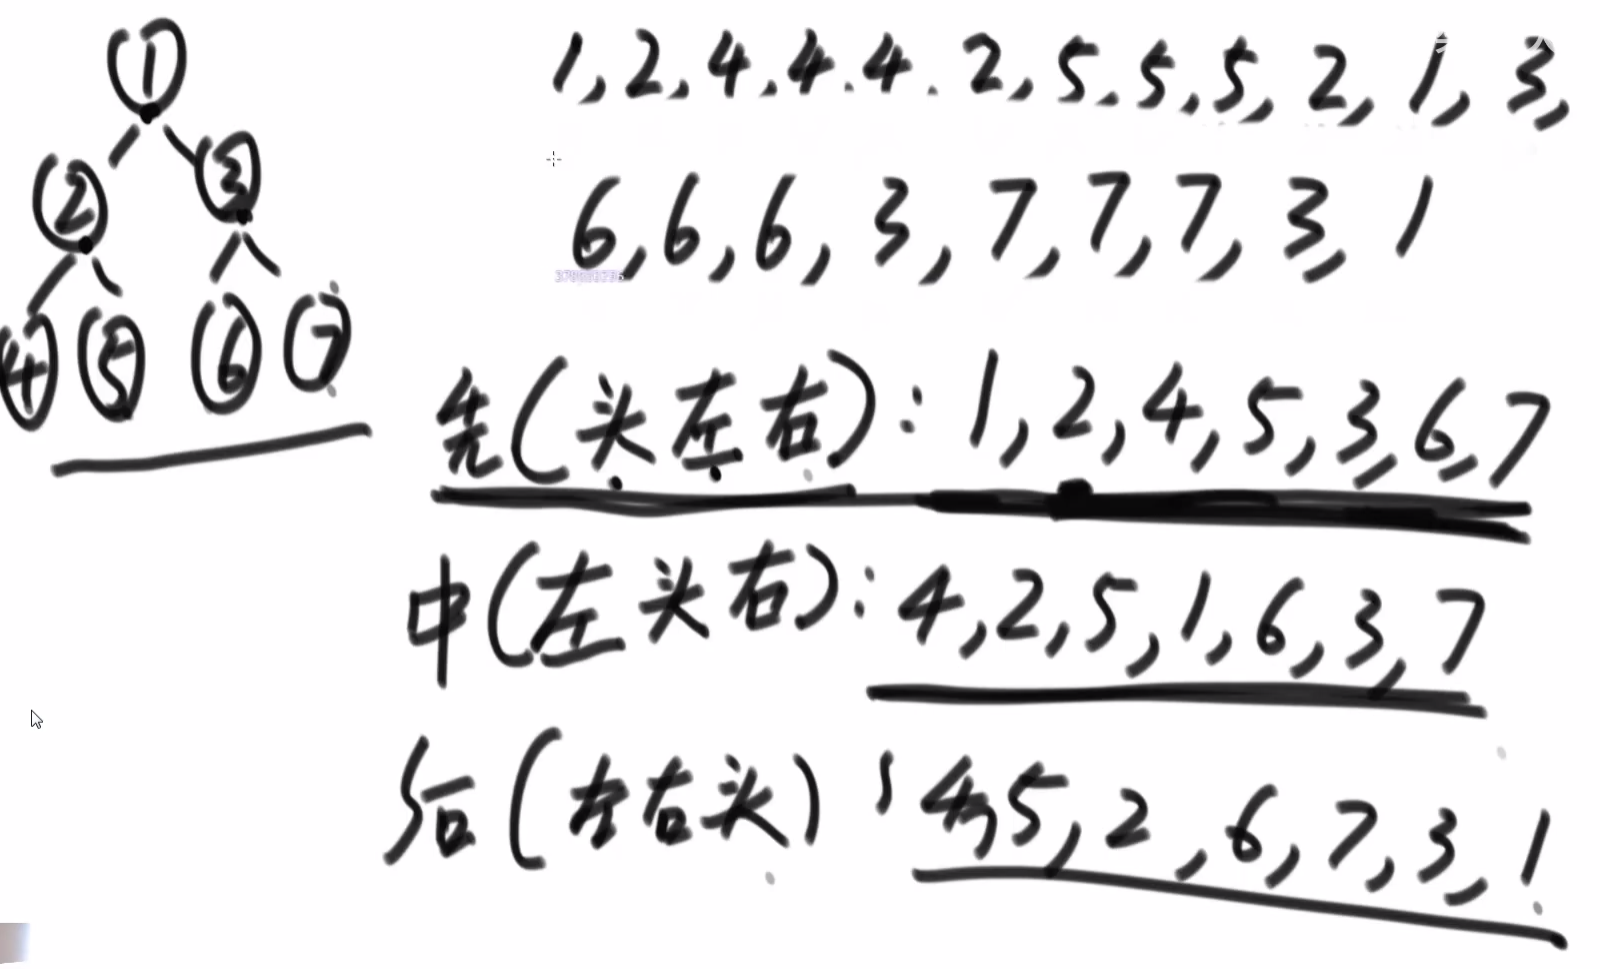 1
2 3
4 5 6 7
1, 2, 4, 4, 4, 2, 5, 5, 5, 2, 1, 3,
6, 6, 6, 3, 7, 7, 7, 3, 1
先(头左右): 1, 2, 4, 5, 3, 6, 7
中(左头右): 4, 2, 5, 1, 6, 3, 7
后(左右头): 4, 5, 2, 6, 7, 3, 1